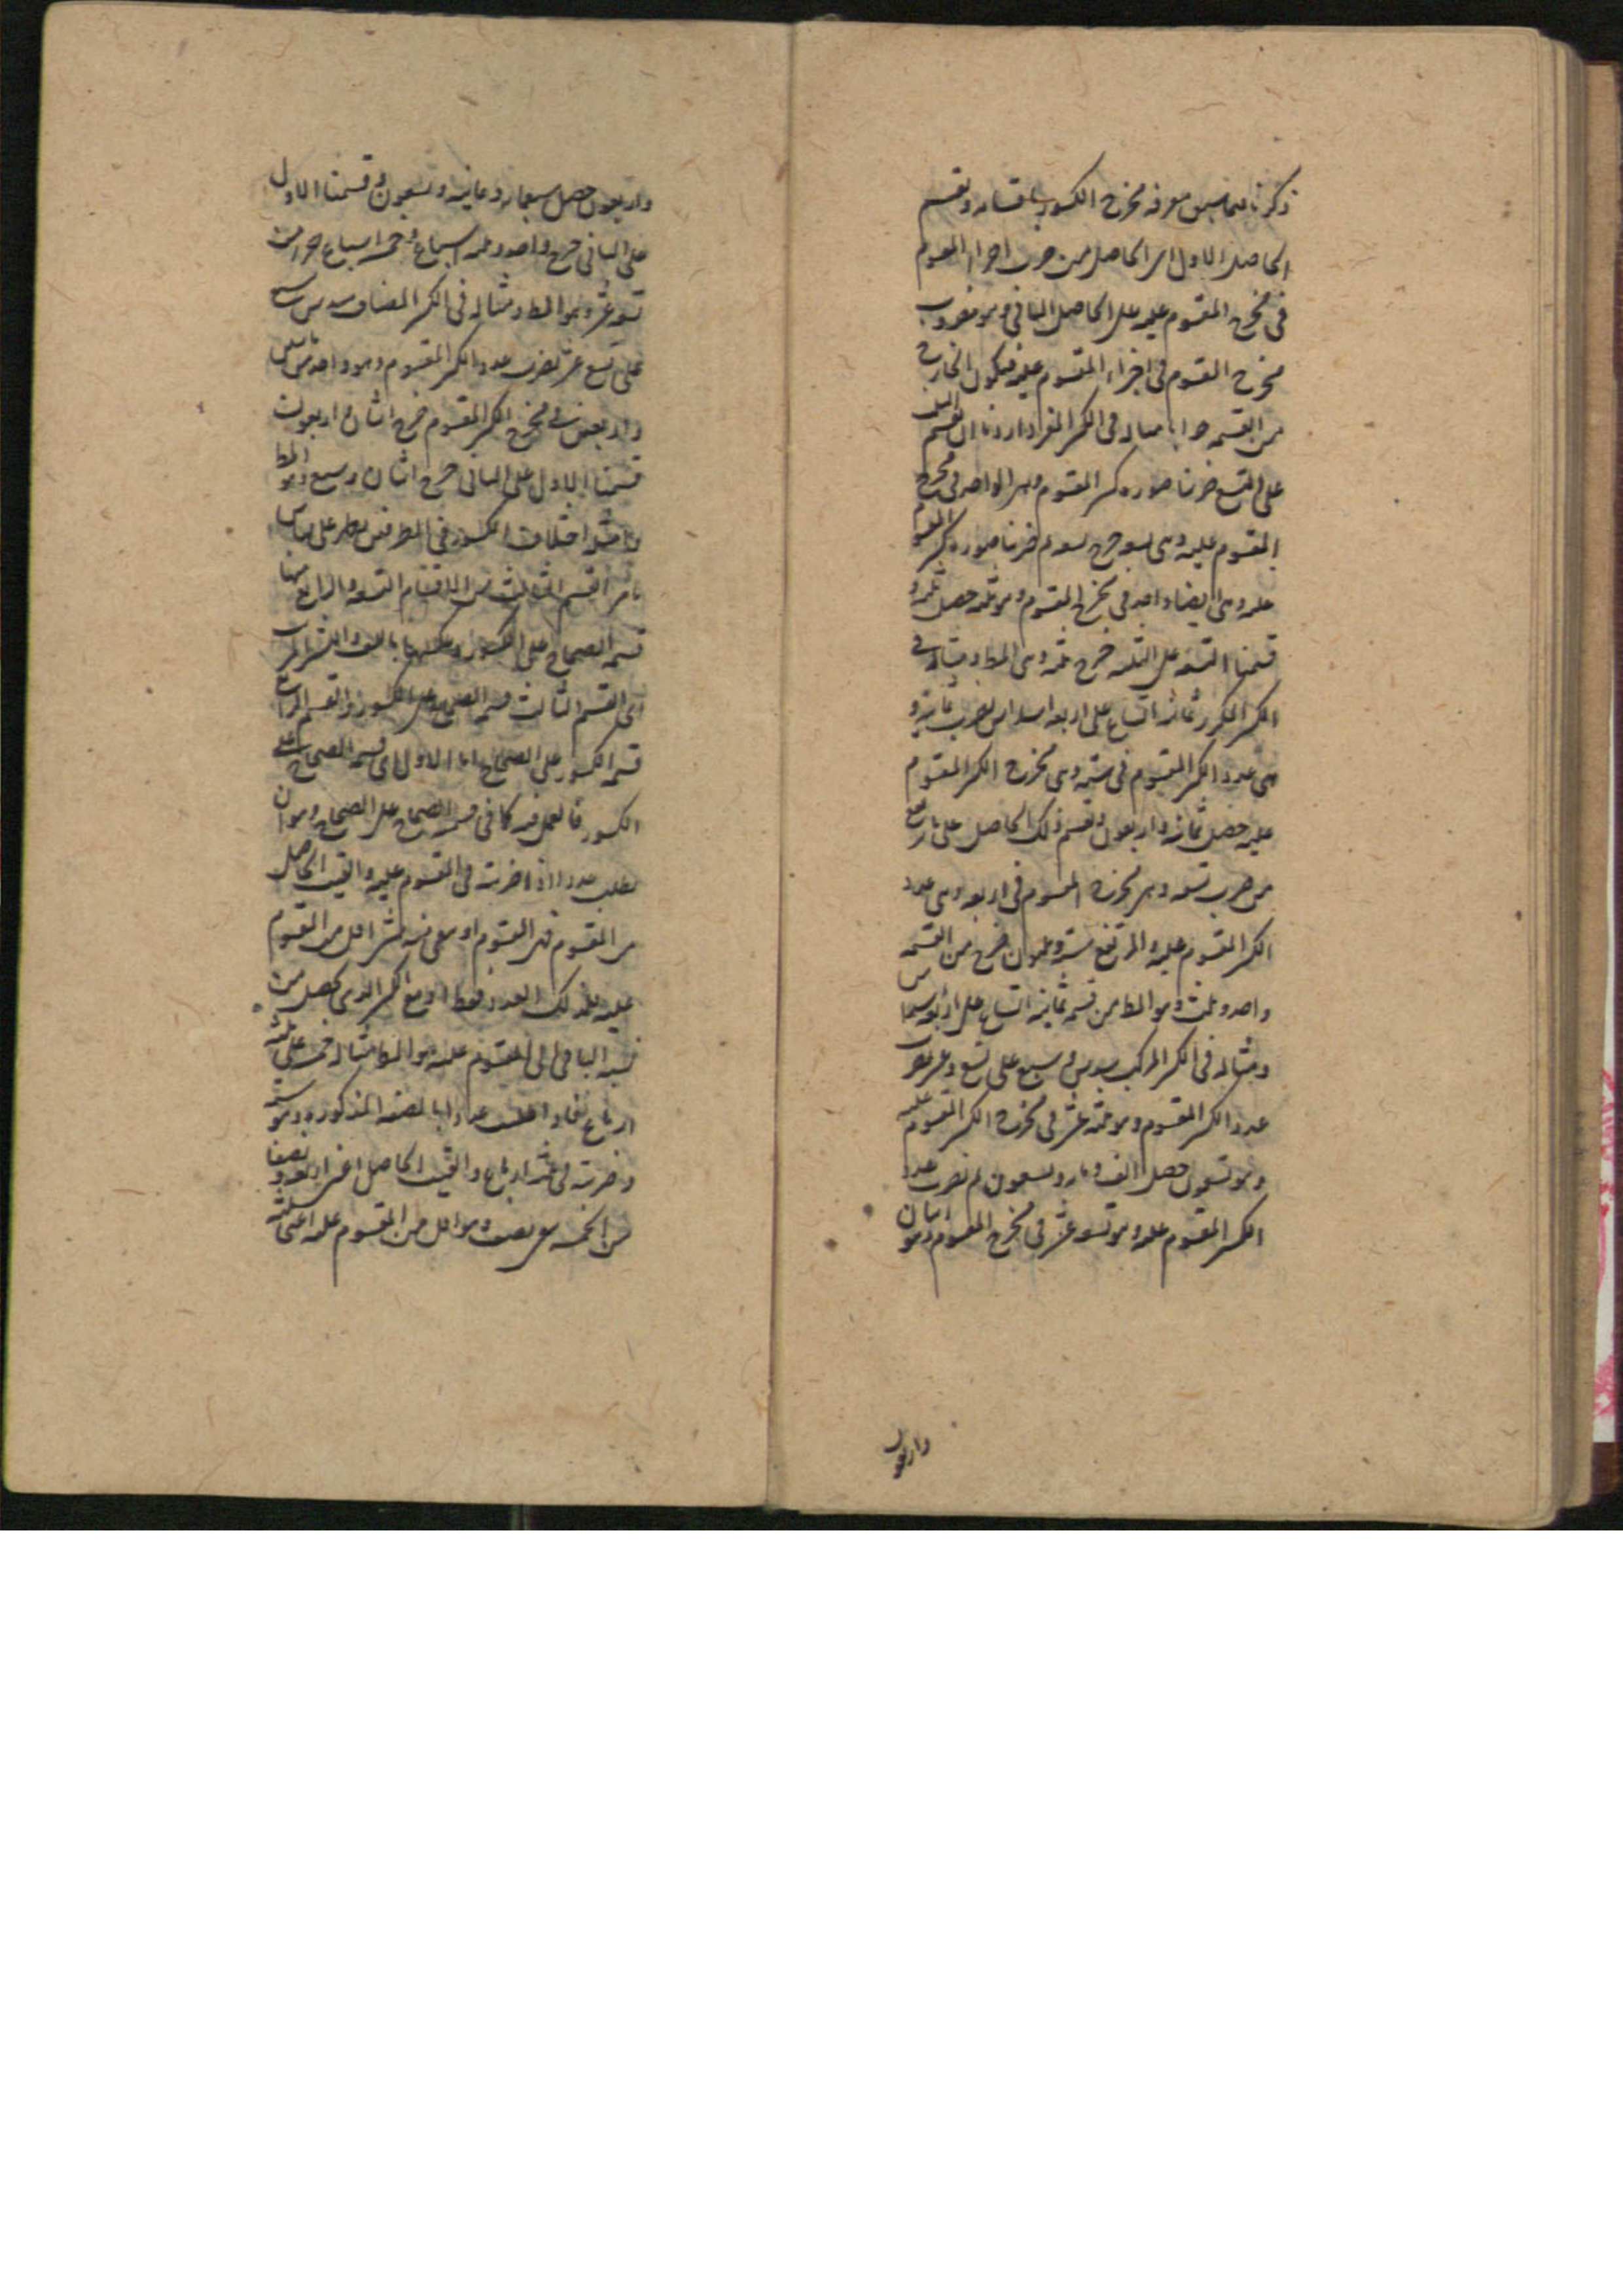 ذكرنا فيما سبق معرفة مخرج الكسور باقسامه ونقسم
الحاصل الاول اى الحاصل من ضرب اجزاء المقسوم
فى مخرج المقسوم عليه على الحاصل الثانى وهو مضروب
مخرج المقسوم فى اجزاء المقسوم عليه فيكون الخارج
من القسمة جوابا مثاله فى الكسر المفرد اردنا ان نقسم الثلث
على التسع ضربنا صورة كسر المقسوم وهى الواحد فى مخرج
المقسوم عليه وهى تسعة خرج تسعة ثم ضربنا صورة كسر المقسوم
عليه وهى ايضا واحد فى مخرج المقسوم وهو ثلثة حصل ثلثة و
قسمنا التسعة على الثلثة خرج ثلثة وهى المط ومثاله فى
الكسر المكرر ثمانية اتساع على اربعة اسداس نضرب ثمانية و
هى عدد الكسر المقسوم فى ستة وهى مخرج الكسر المقسوم
عليه حصل ثمانية واربعون ونقسم ذلك الحاصل على ما ارتفع
من ضرب تسعة وهى مخرج المقسوم فى اربعة وهى عدد
الكسر المقسوم عليه والمرتفع ستة وثلثون خرج من القسمة
واحد وثلث وهو المط من قسمة ثمانية اتساع على اربعة اسداس
ومثاله فى الكسر المركب سدس وسبع على تسع وعشر نضرب
عدد الكسر المقسوم وهو ثلثة عشر فى مخرج الكسر المقسوم عليه
وهو تسعون حصل الف ومائة وسبعون ثم نضرب عدد
الكسر المقسوم عليه وهو تسعة عشر فى مخرج المقسوم وهو اثنان
واربعون
واربعون حصل سبعمائة وثمانية وتسعون وقسمنا الاول
على الثانى خرج واحد وثلثة اسباع وخمسة اسباع جزء من
تسعة عشر وهو المط ومثاله فى الكسر المضاف سدس سبع
على تسع عشر نضرب عدد الكسر المقسوم وهو واحد
واربعون فى مخرج الكسر المقسوم خرج اثنان واربعون
قسمنا الاول على الثانى خرج اثنان وسبع وهو المط
وامثلة اختلاف الكسور فى الطرفين يظهر على قياس
ما مر القسم الثالث من الاقسام التسعة والرابع منها
قسمة الصحاح على الكسور وعكسها باللف والنشر المرتب
اى القسم الثالث قسمة الصحيح على الكسور والقسم الرابع
قسمة الكسور على الصحاح اما الاول اى قسمة الصحاح على
الكسور فالعمل فيه كما فى قسمة الصحاح على الصحاح وهو ان
نطلب عددا اذا ضربته فى المقسوم عليه والقيت الحاصل
من المقسوم فنى المقسوم او بقى منه شئ اقل من المقسوم
عليه فذلك العدد فقط او مع الكسر الذى يحصل من
نسبة الباقى الى المقسوم عليه هو المط مثاله خمسة على ثلثة
ارباع
وضربته فى ثلثة ارباع والقيت الحاصل اعنى اربعة ونصفا
من الخمسة بقى نصف وهو اقل من المقسوم عليه اعنى ثلثة